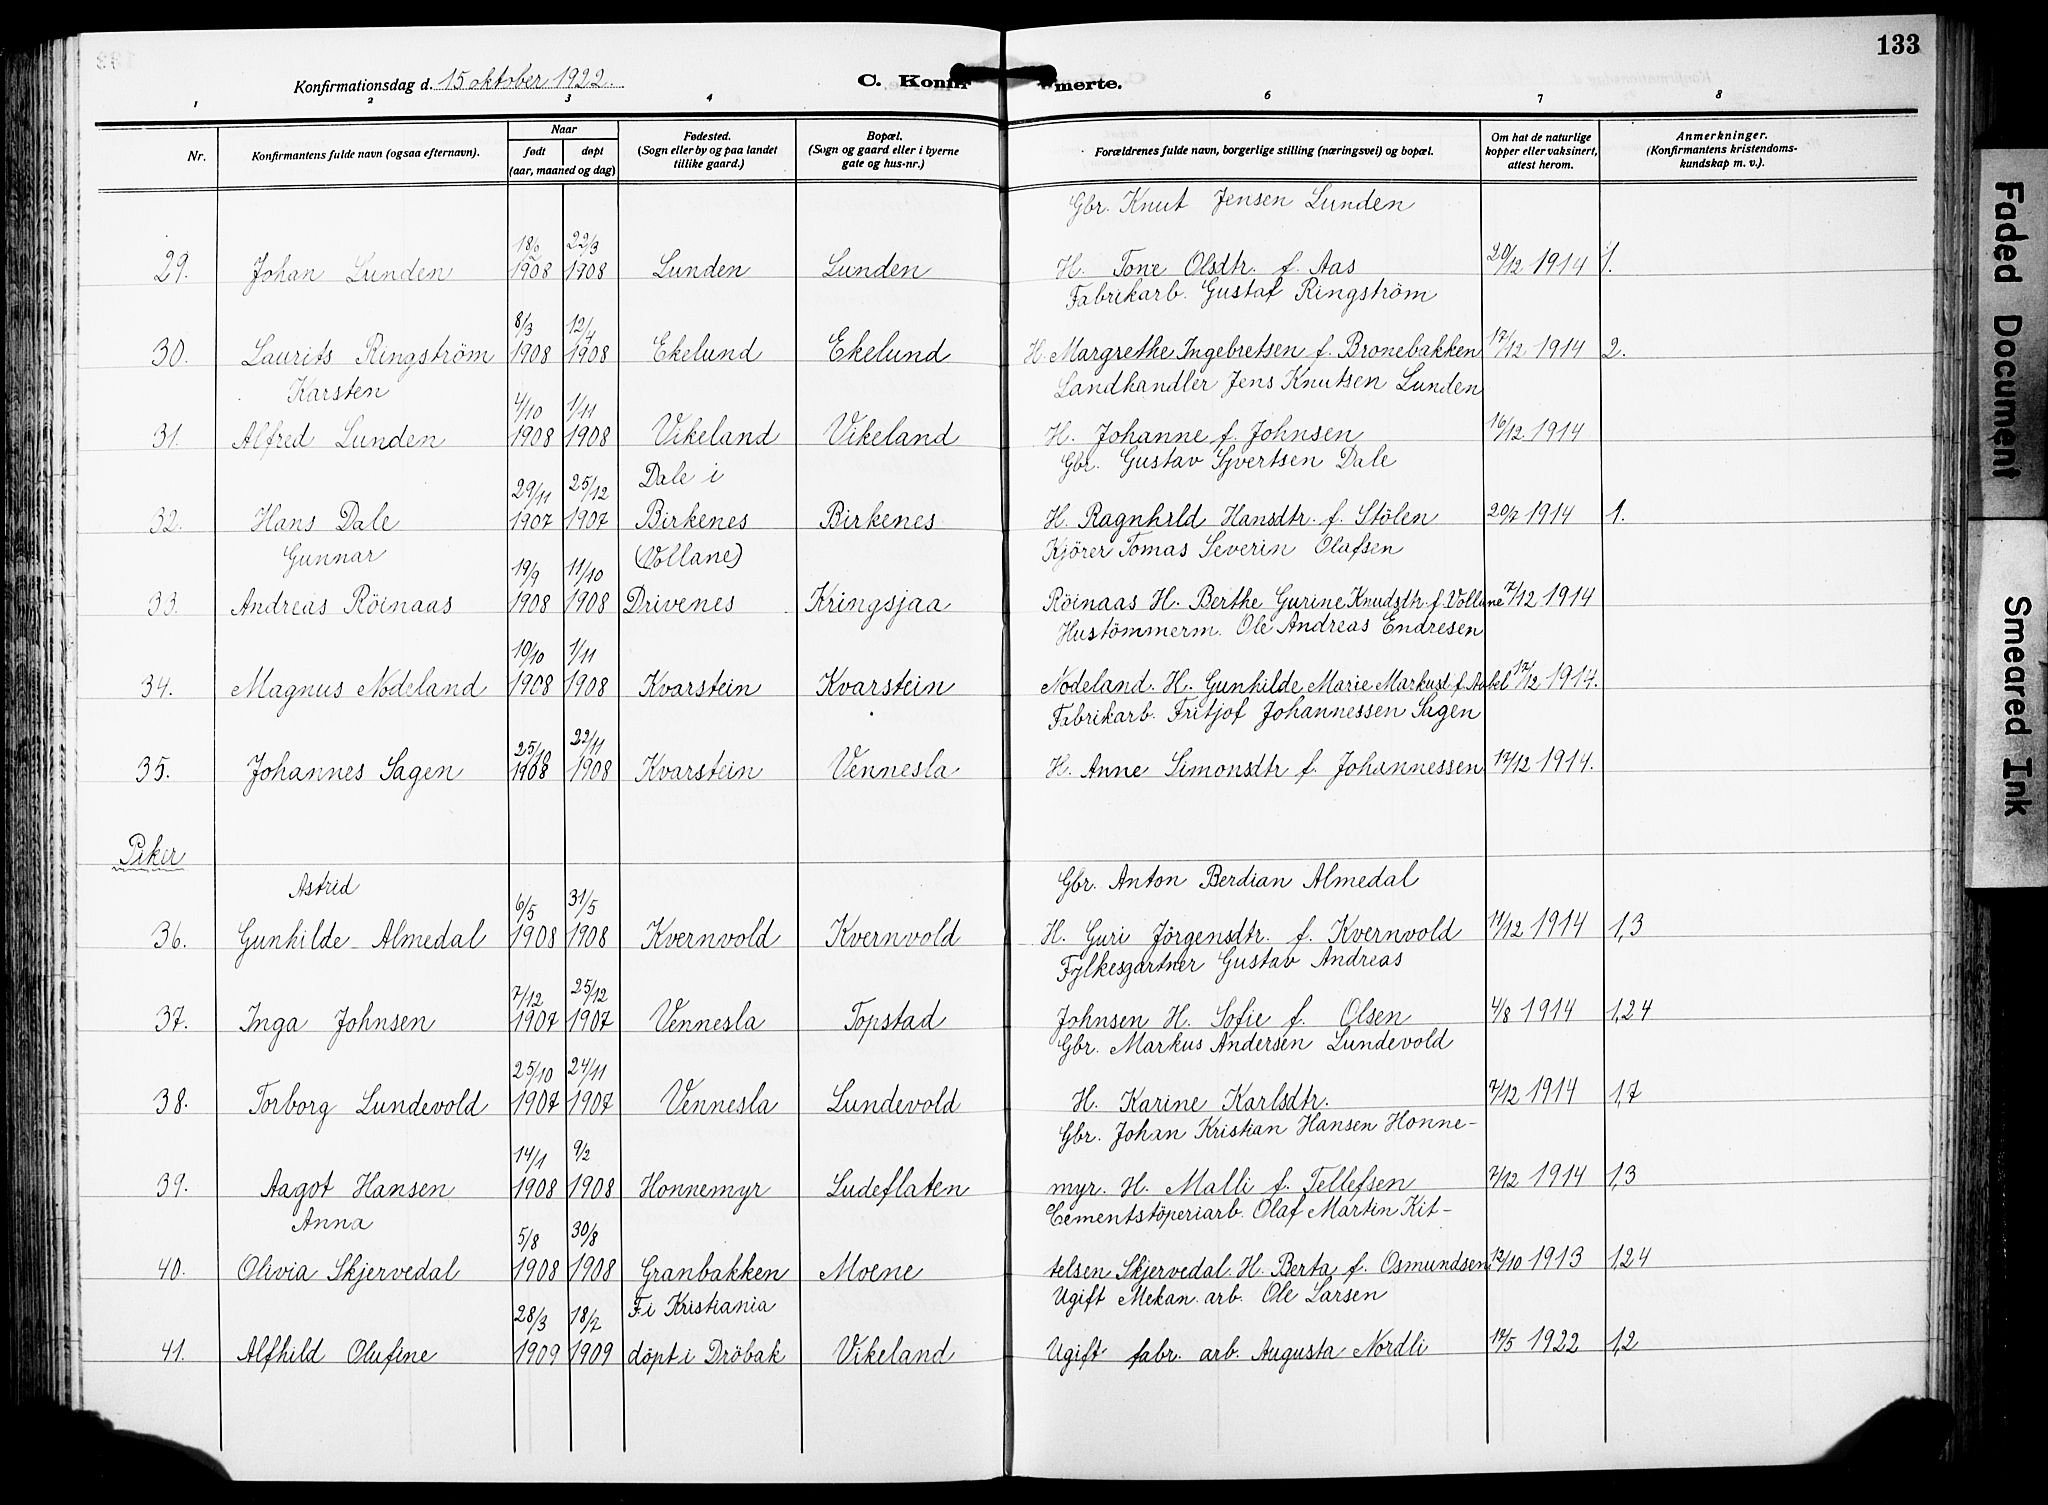 133
Konfirmationsdag d. 15 oktober 1922.
C. Konfirmerte.
1 2 3 4 5 6 7 8
Nr.
Konfirmantens fulde navn (ogsaa efternavn).
Naar
født døpt
(aar, maaned og dag)
Fødested.
(Sogn eller by og paa landet
tillike gaard.)
Bopæl.
(Sogn og gaard eller i byerne
gate og hus-nr.)
Forældrenes fulde navn, borgerlige stilling (næringsvei) og bopæl.
Om hat de naturlige
kopper eller vaksinert,
attest herom.
Anmerkninger.
(Konfirmantens kristendoms-
kundskap m. v.).
Gbr. Knut Jensen Lunden
22/3
29. Johan Lunden 1908 1908 Lunden Lunden H. Tone Olsdtr. f. Aas 29/12 1914 1.
Fabrikarb. Gustaf Ringström
8/3 12/4
30. Laurits Ringström 1908 1908 Ekelund Ekelund H. Margrethe Ingebretsen f. Bronebakken 17/12 1914 2.
Karsten Landhandler Jens Knutsen Lunden
4/10 1/11
31. Alfred Lunden 1908 1908 Vikeland Vikeland H. Johanne f. Johnsen 16/12 1914
Gbr. Gustav Syvertsen Dale
29/11 25/12 Dale i
32. Hans Dale 1907 1907 Birkenes Birkenes H. Ragnhild Hansdtr. f. Stölen 20/7 1914 1.
Gunnar (Vollane) Kjörer Tomas Severin Olafsen
19/9 11/10
33. Andreas Röinaas 1908 1908 Drivenes Kringsjaa Röinaas H. Berthe Gurine Knudsdtr. f. Vollane 7/12 1914
Hustömmerm. Ole Andreas Endresen
10/10 1/11
34. Magnus Nodeland 1908 1908 Kvarstein Kvarstein Nodeland. H. Gunhilde Marie Markusd. f. Aabel 17/12 1914.
Fabrikarb. Fritjof Johannessen Sagen
25/10 22/11
35. Johannes Sagen 1908 1908 Kvarstein Vennesla H. Anne Simonsdtr f. Johannessen 17/12 1914.
Piker
Astrid Gbr. Anton Berdian Almedal
6/5 31/5
36. Gunhilde Almedal 1908 1908 Kvernvold Kvernvold H. Guri Jörgensdtr. f. Kvernvold 11/12 1914 1,3
Fylkesgartner Gustav Andreas
7/12 25/12
37. Inga Johnsen 1907 1907 Vennesla Topstad Johnsen H. Sofie f. Olsen 4/8 1914 1,24
Gbr. Markus Andersen Lundevold
25/10 24/11
38. Torborg Lundevold 1907 1907 Vennesla Lundevold H. Karine Karlsdtr. 7/12 1914 1,7
Gbr. Johan Kristian Hansen Honne-
14/1 9/2
39. Aagot Hansen 1908 1908 Honnemyr Ludeflaten myr. H. Malli f. Tellefsen 7/12 1914 1,3
Anna Cementstöperiarb. Olaf Martin Kit-
5/8 30/8
40. Olivia Skjervedal 1908 1908 Granbakken Moene telsen Skjervedal. H. Berta f. Osmundsen 12/10 1913 1,24
28/3 18/7 F. i Kristiania Ugift Mekan. arb. Ole Larsen
41. Alfhild Olufine 1909 1909 döpt i Dröbak Vikeland Ugift fabr. arb. Augusta Nordli 17/5 1922 1,2
Faded Document
Smeared Ink